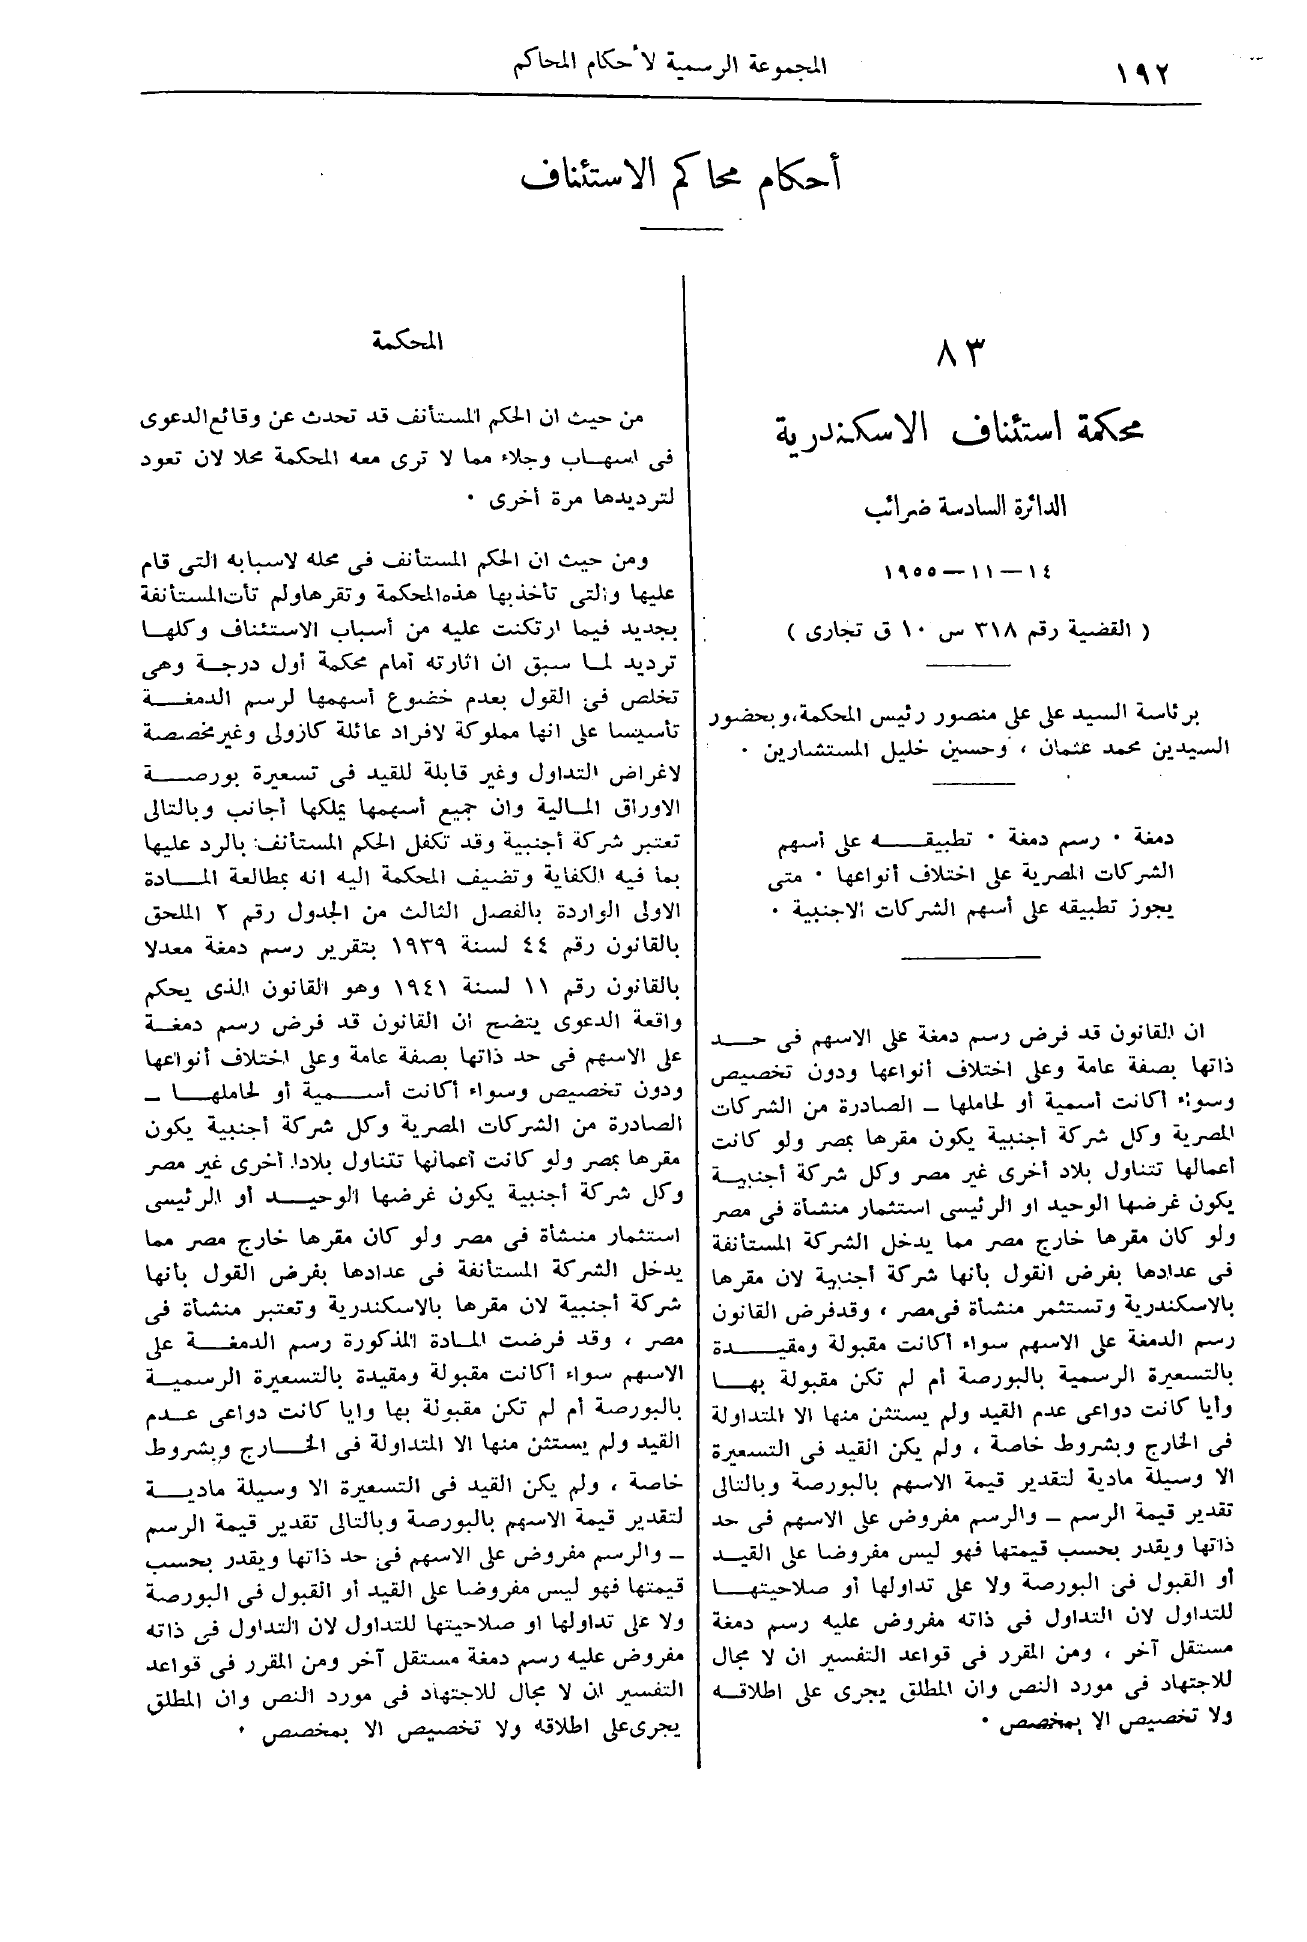 ١٩٢
المجموعة الرسمية لأحكام المحاكم
أحكام محاكم الاستئناف
٨٣
محكمة استئناف الاسكندرية
الدائرة السادسة ضرائب
١٤ — ١١ — ١٩٥٥
( القضية رقم ٣١٨ س ١٠ ق تجارى )
برئاسة السيد على على منصور رئيس المحكمة، وبحضور
السيدين محمد عثمان ، وحسين خليل المستشارين ٠
دمغة ٠ رسم دمغة ٠ تطبيقه على أسهم
الشركات المصرية على اختلاف أنواعها ٠ متى
يجوز تطبيقه على أسهم الشركات الاجنبية ٠
ان القانون قد فرض رسم دمغة على الاسهم فى حد
ذاتها بصفة عامة وعلى اختلاف أنواعها ودون تخصيص
وسواء أكانت أسمية أو لحاملها ـ الصادرة من الشركات
المصرية وكل شركة أجنبية يكون مقرها بمصر ولو كانت
أعمالها تتناول بلاد أخرى غير مصر وكل شركة أجنبية
يكون غرضها الوحيد او الرئيسى استثمار منشأة فى مصر
ولو كان مقرها خارج مصر مما يدخل الشركة المستأنفة
فى عدادها بفرض القول بأنها شركة أجنبية لان مقرها
بالاسكندرية وتستثمر منشأة فى مصر ، وقد فرض القانون
رسم الدمغة على الاسهم سواء أكانت مقبولة ومقيدة
بالتسعيرة الرسمية بالبورصة أم لم تكن مقبولة بها
وأيا كانت دواعى عدم القيد ولم يستثن منها الا المتداولة
فى الخارج وبشروط خاصة ، ولم يكن القيد فى التسعيرة
الا وسيلة مادية لتقدير قيمة الاسهم بالبورصة وبالتالى
تقدير قيمة الرسم ـ والرسم مفروض على الاسهم فى حد
ذاتها ويقدر بحسب قيمتها فهو ليس مفروضا على القيد
أو القبول فى البورصة ولا على تداولها أو صلاحيتها
للتداول لان التداول فى ذاته مفروض عليه رسم دمغة
مستقل آخر ، ومن المقرر فى قواعد التفسير ان لا مجال
للاجتهاد فى مورد النص وان المطلق يجرى على اطلاقه
ولا تخصيص الا بمخصص ٠
المحكمة
من حيث ان الحكم المستأنف قد تحدث عن وقائع الدعوى
فى اسهاب وجلاء مما لا ترى معه المحكمة محلا لان تعود
لترديدها مرة أخرى ٠
ومن حيث ان الحكم المستأنف فى محله لاسبابه التى قام
عليها والتى تأخذ بها هذه المحكمة وتقرها ولم تأت المستأنفة
بجديد فيما ارتكنت عليه من أسباب الاستئناف وكلها
ترديد لما سبق ان اثارته أمام محكمة أول درجة وهى
تخلص فى القول بعدم خضوع أسهمها لرسم الدمغة
تأسيسا على انها مملوكة لافراد عائلة كازولى وغير مخصصة
لاغراض التداول وغير قابلة للقيد فى تسعيرة بورصة
الاوراق المالية وان جميع أسهمها يملكها أجانب وبالتالى
تعتبر شركة أجنبية وقد تكفل الحكم المستأنف بالرد عليها
بما فيه الكفاية وتضيف المحكمة اليه انه بمطالعة المادة
الاولى الواردة بالفصل الثالث من الجدول رقم ٢ الملحق
بالقانون رقم ٤٤ لسنة ١٩٣٩ بتقرير رسم دمغة معدلا
بالقانون رقم ١١ لسنة ١٩٤١ وهو القانون الذى يحكم
واقعة الدعوى يتضح ان القانون قد فرض رسم دمغة
على الاسهم فى حد ذاتها بصفة عامة وعلى اختلاف أنواعها
ودون تخصيص وسواء أكانت أسمية أو لحاملها ـ
الصادرة من الشركات المصرية وكل شركة أجنبية يكون
مقرها بمصر ولو كانت أعمالها تتناول بلادا أخرى غير مصر
وكل شركة أجنبية يكون غرضها الوحيد أو الرئيسى
استثمار منشأة فى مصر ولو كان مقرها خارج مصر مما
يدخل الشركة المستأنفة فى عدادها بفرض القول بأنها
شركة أجنبية لان مقرها بالاسكندرية وتعتبر منشأة فى
مصر ، وقد فرضت المادة المذكورة رسم الدمغة على
الاسهم سواء أكانت مقبولة ومقيدة بالتسعيرة الرسمية
بالبورصة أم لم تكن مقبولة بها وايا كانت دواعى عدم
القيد ولم يستثن منها الا المتداولة فى الخارج وبشروط
خاصة ، ولم يكن القيد فى التسعيرة الا وسيلة مادية
لتقدير قيمة الاسهم بالبورصة وبالتالى تقدير قيمة الرسم
ـ والرسم مفروض على الاسهم فى حد ذاتها ويقدر بحسب
قيمتها فهو ليس مفروضا على القيد أو القبول فى البورصة
ولا على تداولها او صلاحيتها للتداول لان التداول فى ذاته
مفروض عليه رسم دمغة مستقل آخر ومن المقرر فى قواعد
التفسير ان لا مجال للاجتهاد فى مورد النص وان المطلق
يجرى على اطلاقه ولا تخصيص الا بمخصص ٠